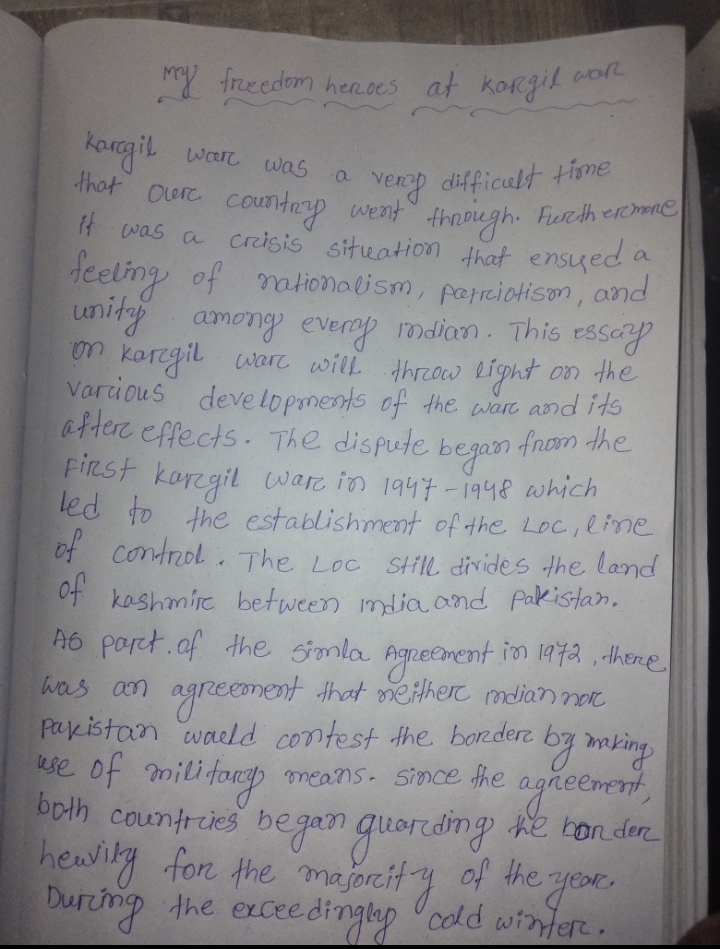 My freedom heroes at kargil war
Kargil war was a very difficult time
that our country went through. Furthermore
it was a crisis situation that ensued a
feeling of nationalism, patriotism, and
unity among every indian. This essay
on kargil war will throw light on the
various developments of the war and its
after effects. The dispute began from the
First kargil war in 1947-1948 which
led to the establishment of the LOC, line
of control. The LOC still divides the land
of kashmir between india and Pakistan.
As part. of the simla Agreement in 1972, there
was an agreement that neither indian nor
pakistan would contest the border by making
use of military means. since the agreement,
both countries began guarding the border
heavily for the majority of the year.
During the exceedingly cold winter.